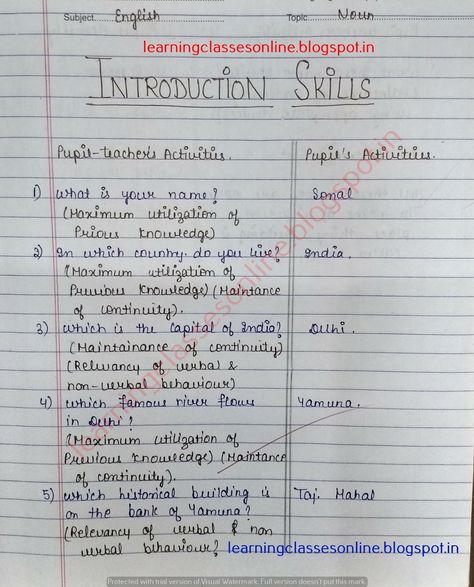 Subject English Topic Noun
learningclassesonline.blogspot.in
INTRODUCTION SKILLS
Pupil-teacher's Activities. Pupil's Activities.
1) What is your name? Sonal
(Maximum utilization of
Prious knowledge)
2) In which country do you live? India.
(Maximum utilization of
Previous knowledge) (Maintance
of continuity).
3) which is the capital of India? Delhi.
(Maintainance of continuity)
(Relevancy of verbal &
non-verbal behaviour)
4) which famous river flows Yamuna.
in Delhi?
(Maximum utilization of
Previous knowledge) (Maintance
of continuity).
5) which historical building is Taj Mahal
on the bank of Yamuna?
(Relevancy of verbal & non
verbal behaviour? learningclassesonline.blogspot.in
learningclassesonline.blogspot.in
Protected with trial version of Visual Watermark. Full version doesn't put this mark.